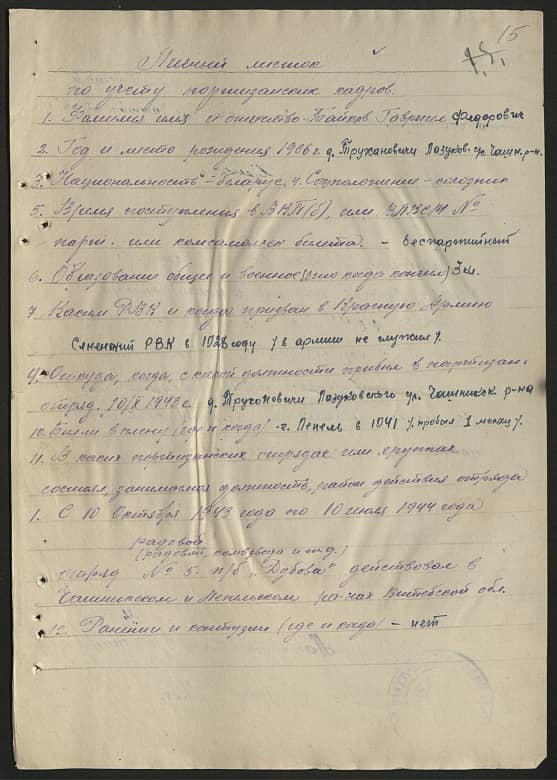 15
Личный листок
по учету партизанских кадров.
1. Фамилия имя и отчество Байков Гавриил Федорович
2. Год и место рождения 1906 г. д. Тружановичи Лазуков. с/с Чашн. р-н.
3. Национальность – беларус, 4. Соцположение – колхозник
5. Время поступления в ВКП(б), или ВЛКСМ №
парт. или комсомольск билета. – беспартийный
6. Образование общее и военное (что когда кончил) 3 кл.
7. Каким РВК и когда призван в Красную Армию
Сененский РВК в 1928 году /в армии не служил/.
9. Откуда, когда, с какой должности прибыл в партизан.
отряд. 10/X 1943 г. д. Тружановичи Лазуковского с/с. Чашникск р-на
10. Были в плену (где и когда) - г. Лепель в 1941 /пробыл 1 месяц/.
11. В каких партизанских отрядах или группах
состоял, занимаемая должность, район действия отряда
1. С 10 Октября 1943 года по 10 июля 1944 года
радовой
(радовой, комвзвода и т.д.)
отряд № 5. п/б „Дубова" действовал в
Чашникском и Лепельском р-нах Витебской обл.
12. Ранения и контузии (где и когда) – нет